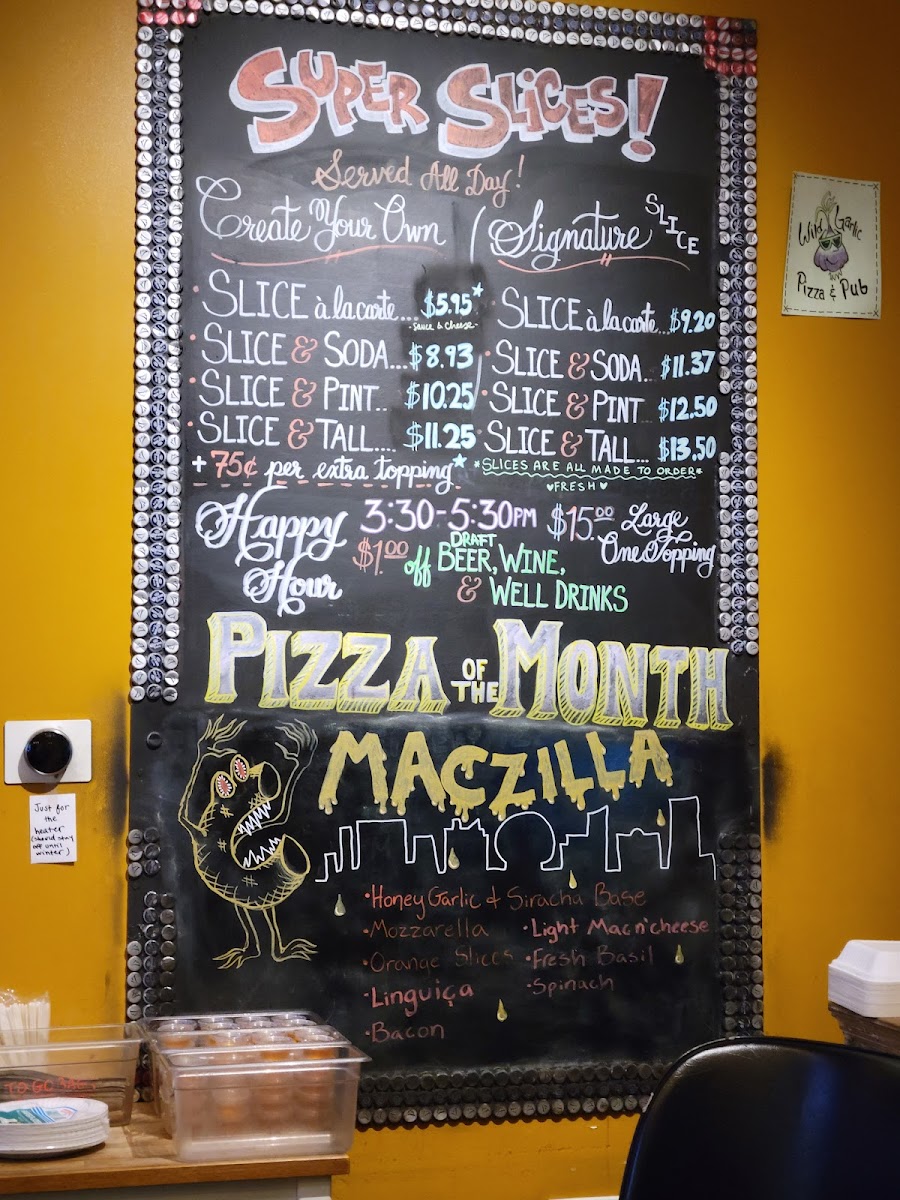 SUPER SLICES!
Served All Day!
Create Your Own
SLICE à la carte... $5.95*
- Sauce & Cheese -
• SLICE & SODA.... $8.93
• SLICE & PINT.. $10.25
• SLICE & TALL.... $11.25
+ 75¢ per extra topping*
Signature SLICE
SLICE à la carte... $9.20
• SLICE & SODA.. $11.37
• SLICE & PINT... $12.50
SLICE & TALL... $13.50
*SLICES ARE ALL MADE TO ORDER*
♥FRESH♥
Happy Hour
3:30-5:30PM
$1.00 off DRAFT BEER, WINE,
& WELL DRINKS
$15.00 Large
One Topping
PIZZA OF THE MONTH
MACZILLA
• Honey Garlic & Siracha Base
• Mozzarella
• Orange Slices
• Linguiça
• Bacon
• Light Mac n' cheese
• Fresh Basil
• Spinach
Wild Garlic
Pizza & Pub
Just for
the
heater
(should stay
off until
winter)
TO GO